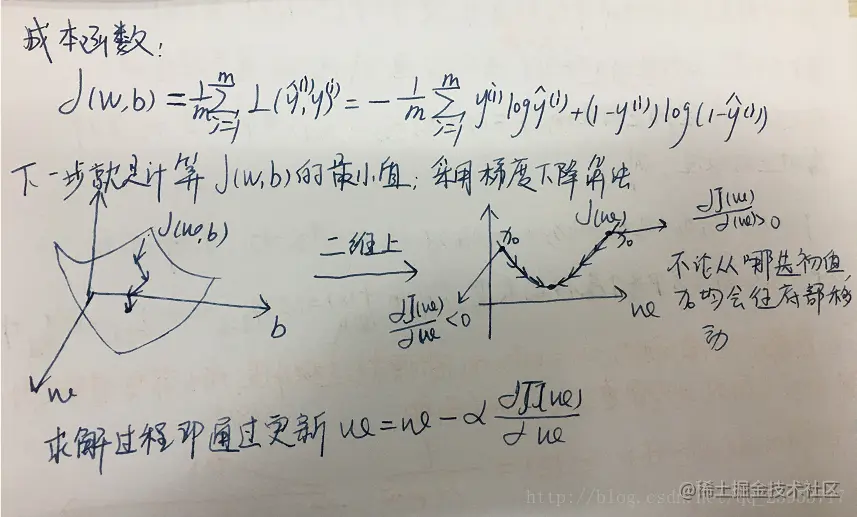 成本函数:
J(w,b) = 1/m ∑_{i=1}^{m} L(ŷ⁽ⁱ⁾, y⁽ⁱ⁾) = - 1/m ∑_{i=1}^{m} y⁽ⁱ⁾ log ŷ⁽ⁱ⁾ + (1-y⁽ⁱ⁾) log(1-ŷ⁽ⁱ⁾)
下一步就是计算 J(w,b) 的最小值; 采用梯度下降算法
J(w,b)
b
w
二维上
J(w)
dJ(w)/dw < 0
w
dJ(w)/d(w) > 0
不论从哪选初值,
均会往底部移
动
求解过程即通过更新 w = w - α dJ(w)/dw
@稀土掘金技术社区